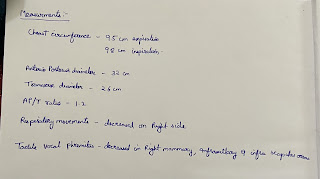 Measurments :-
Chest circumference - 95 cm expiration
98 cm inspiration.
Anterio Posterior diameter - 32 cm
Transverse diameter - 26 cm
AP/T ratio - 1.2
Respiratory movements - decreased on Right side
Tactile Vocal phremitus - decreased in Right mammary, infraaxillary & infra scapular areas